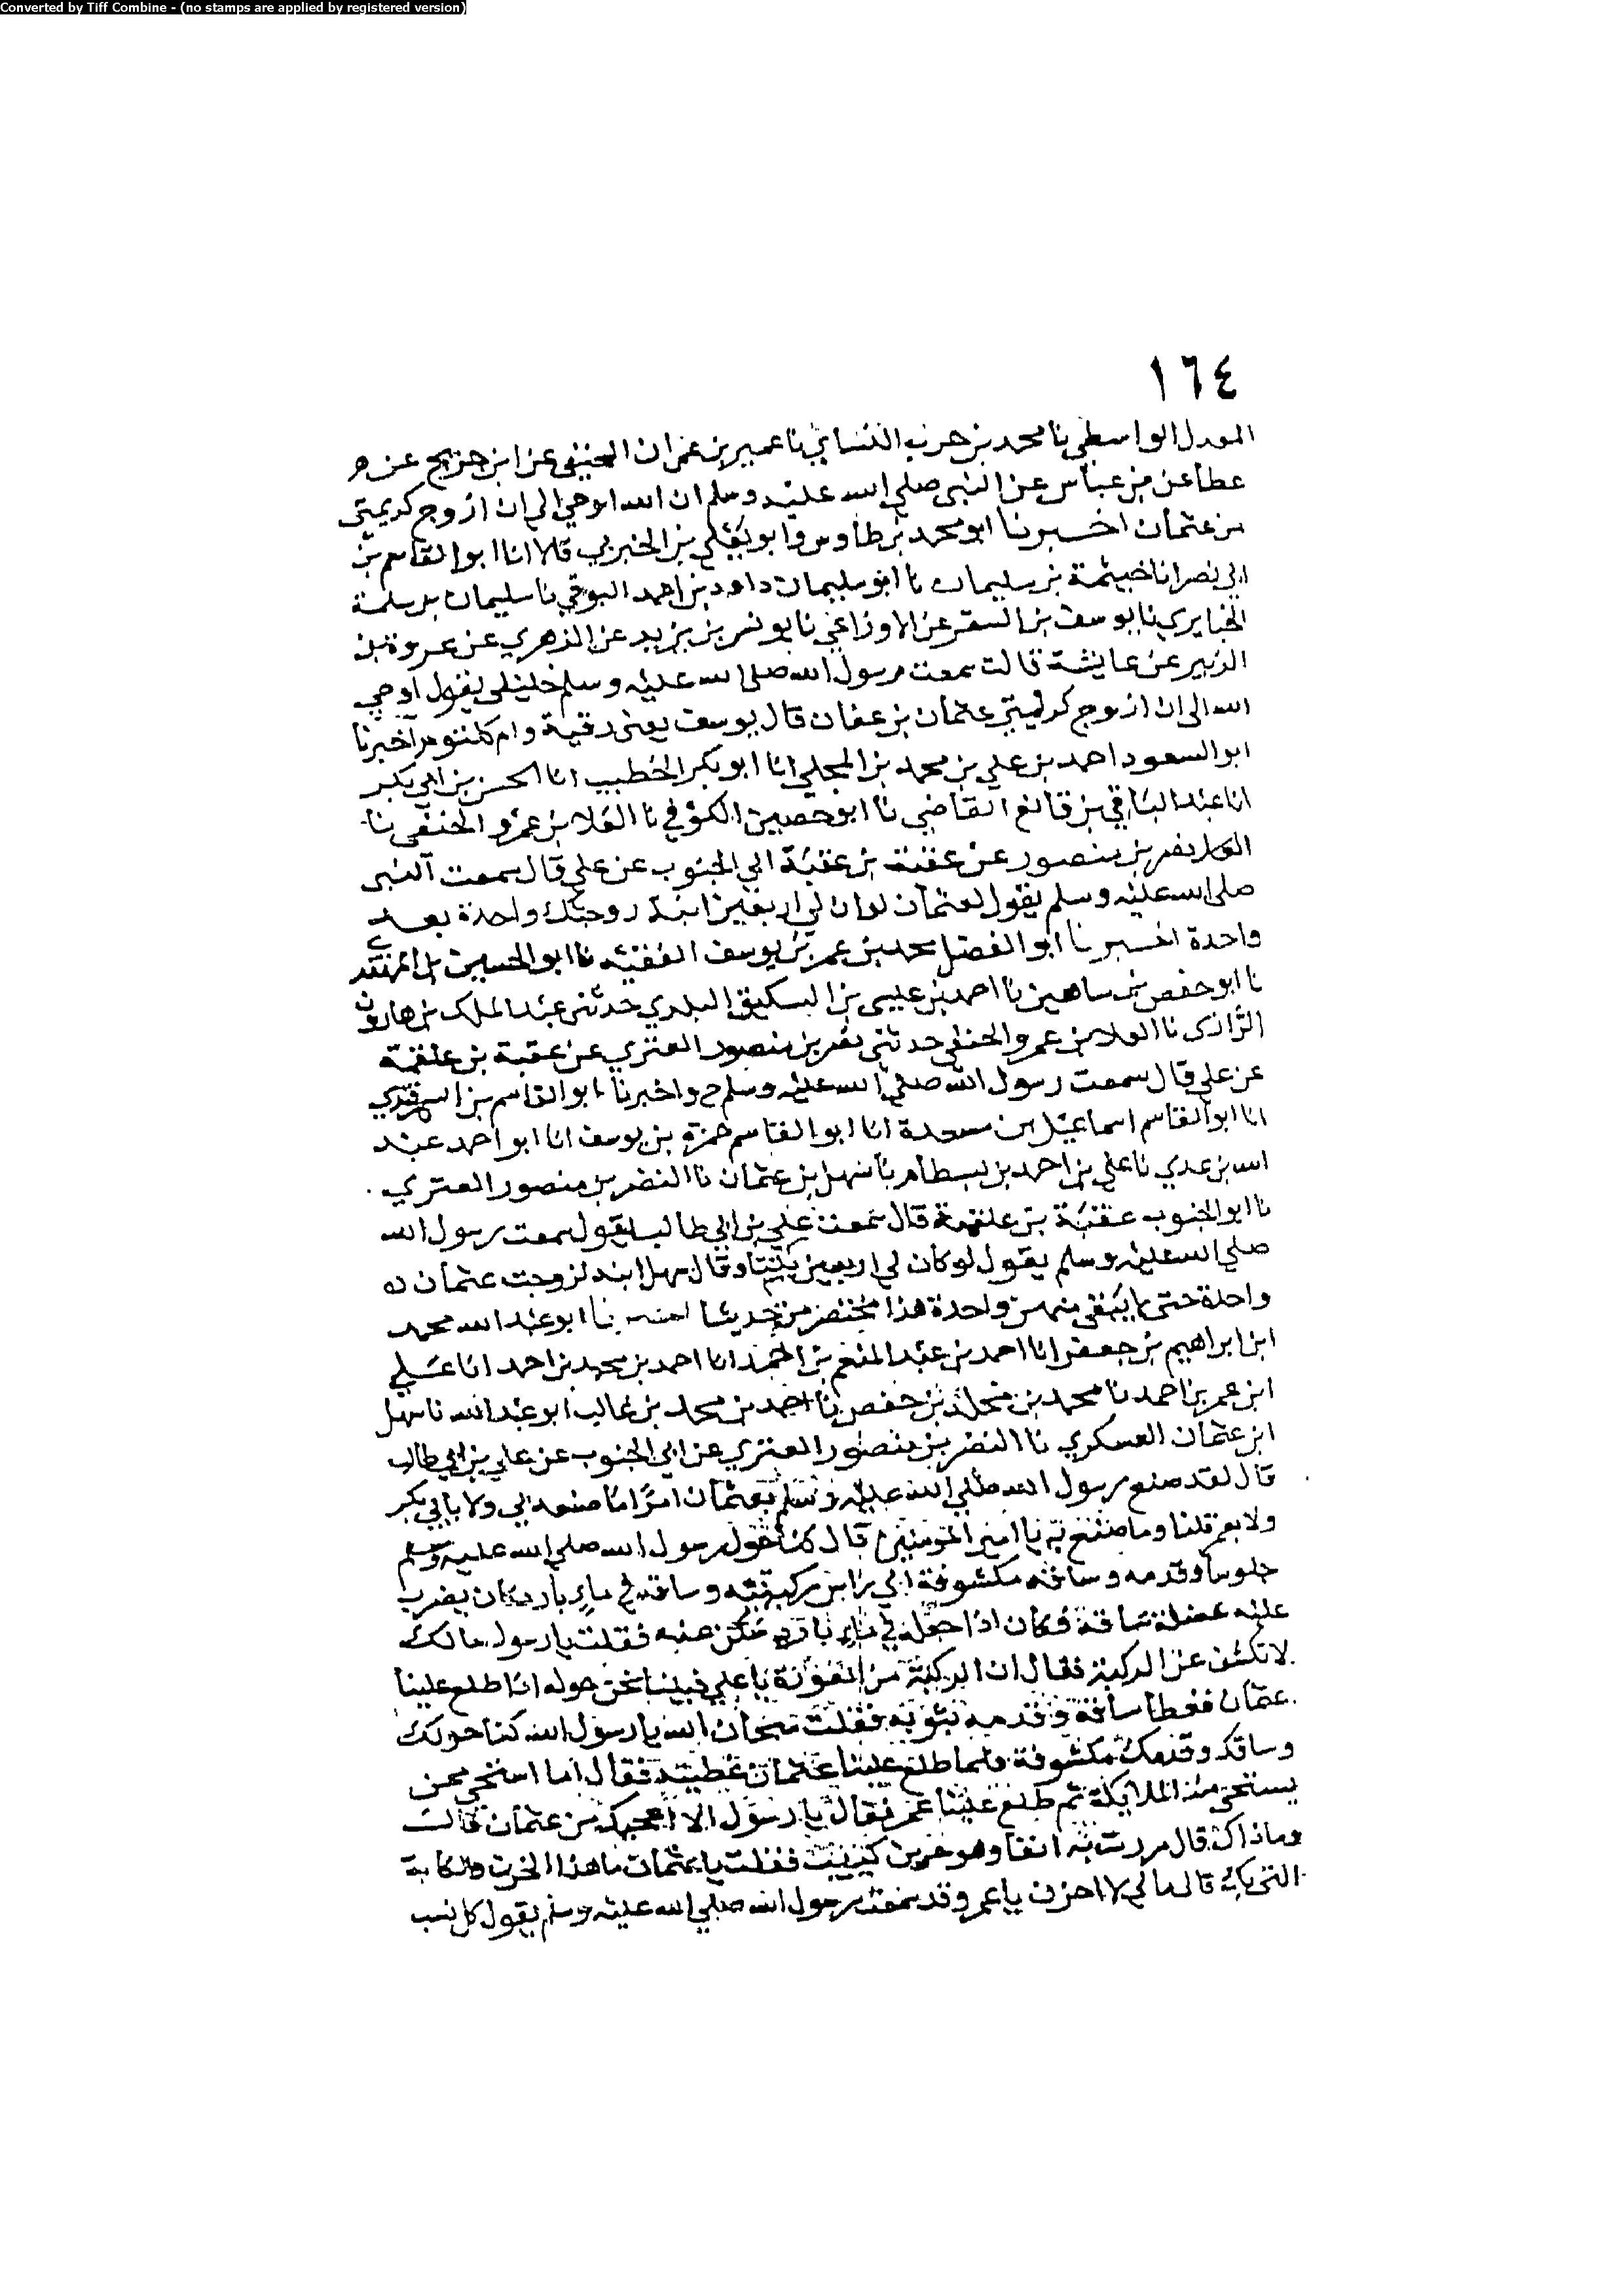 Converted by Tiff Combine - (no stamps are applied by registered version)
١٦٤
المعدل الواسطي نا محمد بن حرب النسائي نا عمير بن عمران الحنفي عن ابن جريج عن
عطا عن بن عباس عن النبي صلى الله عليه وسلم ان الله اوحى الي ان ازوج كريمتي
من عثمان اخبرنا ابو محمد بن طاوس وابو يعلى بن الحبوبي قالا انا ابو القاسم بن
ابي نصر انا خيثمة بن سليمان نا ابو سليمان داود بن احمد نا سليمان بن سلمة
الخبايري نا يوسف بن السفر عن الاوزاعي نا يونس بن يزيد عن الزهري عن عروة بن
الزبير عن عايشة قالت سمعت رسول الله صلى الله عليه وسلم خليلي يقول اوحي
الله الي ان ازوج كريمتي عثمان بن عفان قال يوسف يعني رقية وام كلثوم اخبرنا
ابو السعود احمد بن علي بن محمد بن المجلي انا ابو بكر الخطيب انا الحسن بن ابي بكر
انا عبد الباقي بن قانع القاضي نا ابو حصين الكوفي نا العلا بن عمرو الحنفي نا
نضر بن منصور عن عقبة بن عقبة ابي الجنوب عن علي قال سمعت النبي
صلى الله عليه وسلم يقول لعثمان لو ان لي اربعين ابنة زوجتك واحدة بعد
واحدة اخبرنا ابو الفضل محمد بن عمر بن يوسف الفقيه نا ابو الحسين بن المهتدي
نا ابو حفص بن شاهين نا احمد بن عيسى بن السكين البلدي حدثني عبد الملك بن هارون
نا العلا بن عمرو الحنفي حدثني نضر بن منصور العنزي عن عقبة بن علقمة
عن علي قال سمعت رسول الله صلى الله عليه وسلم ح واخبرنا ابو القاسم بن السمرقندي
انا ابو القاسم اسماعيل بن مسعدة انا ابو القاسم حمزة بن يوسف انا ابو احمد عبد
الله بن عدي نا علي بن احمد بن بسطام نا سهل بن عثمان نا النضر بن منصور العنزي
نا ابو الجنوب عقبة بن علقمة قال سمعت علي بن ابي طالب يقول سمعت رسول الله
صلى الله عليه وسلم يقول لو كان لي اربعين بنتا وقال سهل ابنة لزوجت عثمان
واحدة حتى لا يبقى منهن واحدة هذا مختصر من حديث اخبرنا ابو عبد الله محمد
ابن ابراهيم بن جعفر انا احمد بن عبد المنعم بن احمد انا احمد بن محمد بن احمد انا علي
ابن عمر بن احمد نا محمد بن مخلد بن حفص نا احمد بن محمد بن غالب ابو عبد الله نا سهل
ابن عثمان العسكري نا النضر بن منصور العنزي عن ابي الجنوب عن علي بن ابي طالب
قال لقد صنع رسول الله صلى الله عليه وسلم بعثمان امرا ما صنعه بي ولا بابي بكر
ولا بعمر قلنا وما صنع به يا امير المومنين قال كنا حول رسول الله صلى الله عليه وسلم
جلوسا وقدمه وساقه مكشوفة الي ركبتيه وساقه في ماء بارد كان يضرب
عليه عضلة ساقه فكان اذا جعله في ماء بارد سكن عنه فقلت يا رسول مالك
لا تكشف عن الركبة فقال ان الركبة من العورة يا علي فبينا نحن حوله اذا طلع علينا
عثمان فغطا ساقه وقدمه بثوبه فقلت سبحان الله يا رسول الله كنا حولك
وساقك وقدمك مكشوفة فلما طلع علينا عثمان غطيته فقال اما استحي ممن
يستحي منه الملايكة ثم طلع علينا عمر فقال يا رسول الا اعجبك من عثمان قالت
وما ذاك قال مررت به انفا وهو حزين كئيب فقلت يا عثمان ما هذا الحزن والكابة
التي بك قال مالي لا احزن يا عمر وقد سمعت رسول الله صلى الله عليه وسلم يقول كل نسب